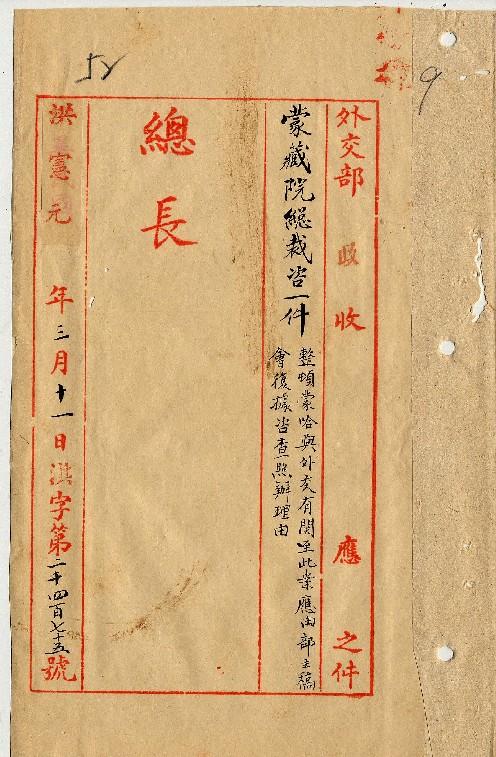 外交部收收應之件
蒙藏院總裁咨一件
整頓蒙哈與外交有關至此業應由部主稿
會復據咨查照辦理由
總長
洪憲元年三月十一日洪字第二千四百七十五號
52
9